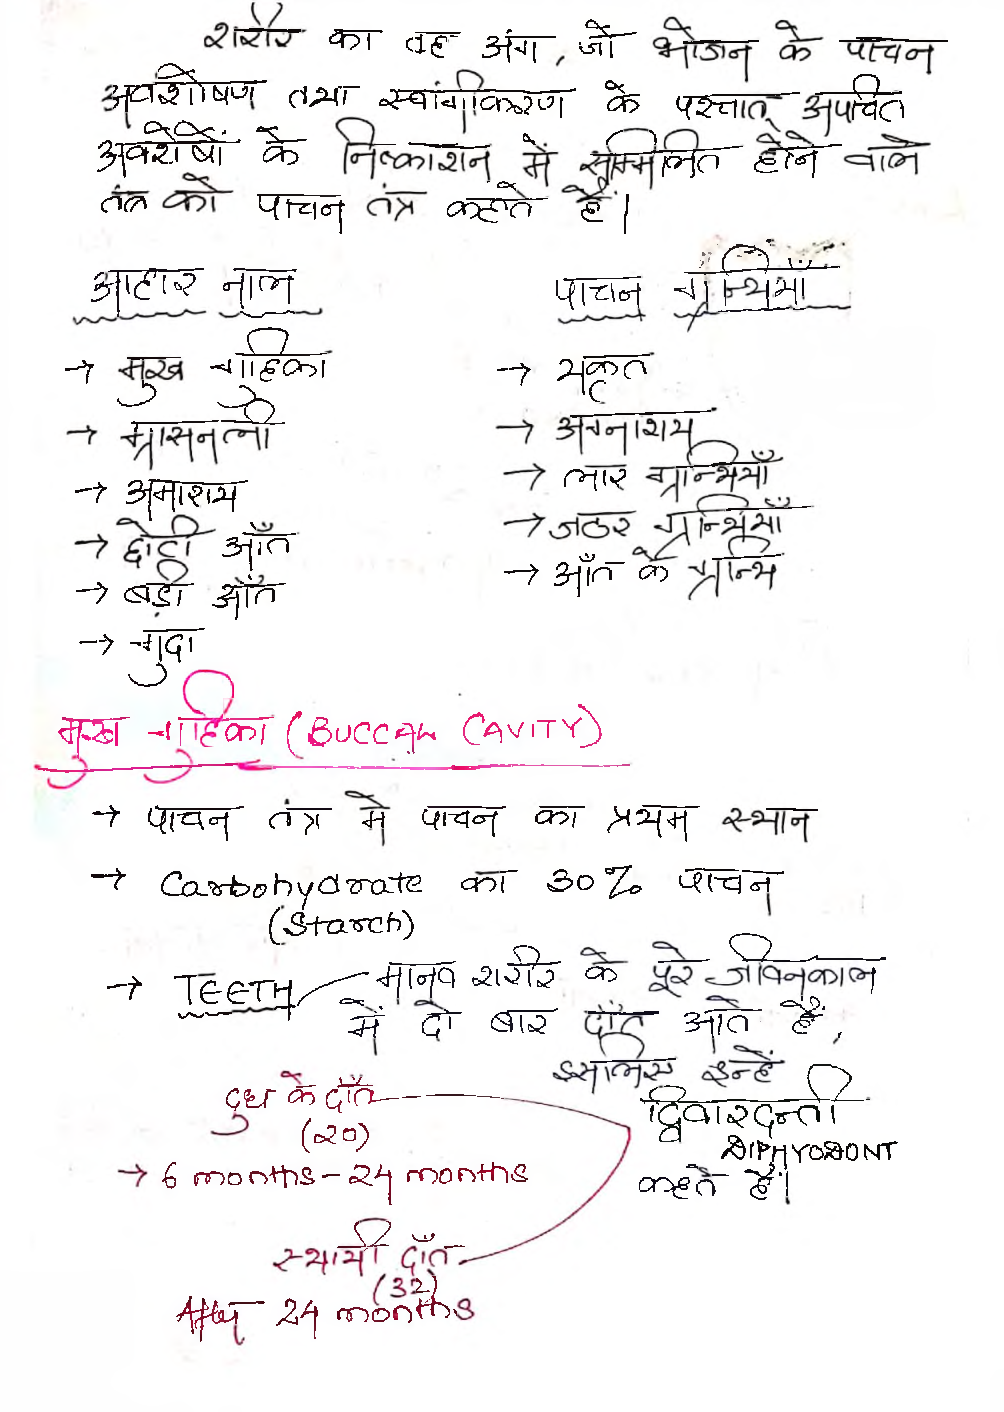 शरीर का वह अंग, जो भोजन के पाचन
अवशोषण तथा स्वांगीकरण के पश्चात् अपचित
अवशेषों के निष्काशन में सम्मिलित होने वाले
तंत्र को पाचन तंत्र कहते हैं।
आहार नाल
→ मुख गुहिका
→ ग्रासनली
→ अमाशय
→ छोटी आँत
→ बड़ी आँत
→ गुदा
पाचन ग्रन्थियाँ
→ यकृत
→ अग्नाशय
→ लार ग्रन्थियाँ
→ जठर ग्रन्थियाँ
→ आँत के ग्रन्थि
मुख गुहिका (BUCCAL CAVITY)
→ पाचन तंत्र में पाचन का प्रथम स्थान
→ Carbohydrate का 30% पाचन
(Starch)
→ TEETH मानव शरीर के पूरे जीवनकाल
में दो बार दाँत आते हैं,
इसलिए इन्हें
द्विवारदन्ती
DIPHYODONT
कहते हैं।
दुध के दाँत
(20)
→ 6 months - 24 months
स्थायी दाँत
(32)
After 24 months